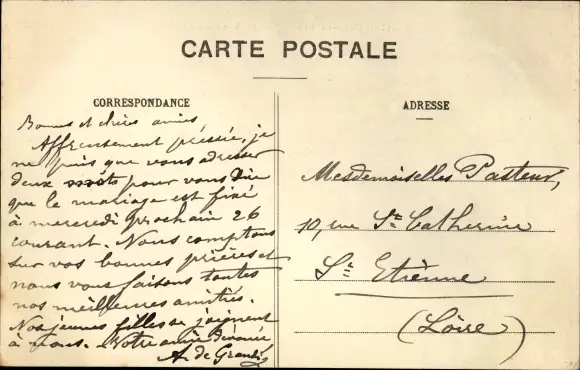 CARTE POSTALE
CORRESPONDANCE
Bonnes et chères amies,
Affreusement pressée, je
ne puis que vous adresser
deux mots pour vous dire
que le mariage est fixé
à mercredi prochain 26
courant. Nous comptons
sur vos bonnes prières et
nous vous faisons toutes
nos meilleures amitiés.
Nos jeunes filles se joignent
à nous. Votre amie dévouée
A. de
ADRESSE
Mesdemoiselles Pasteur,
10, rue Ste Catherine
St Etienne
(Loire)